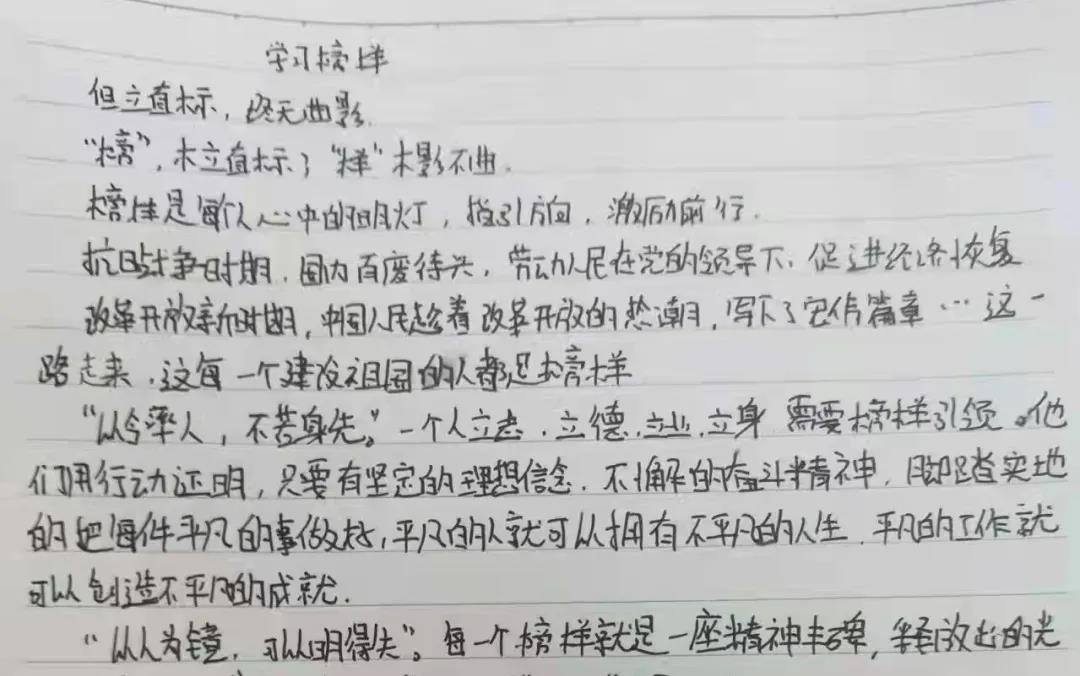 学习榜样
但立直标，终无曲影.
“榜”，木立直标；“样”木影不曲.
榜样是每个人心中的明灯，指引方向，激励前行.
抗日战争时期，国内百废待兴，劳动人民在党的领导下，促进经济恢复
改革开放新时期，中国人民趁着改革开放的热潮，写下了宏伟篇章…这一
路走来，这每一个建设祖国的人都是榜样
“以令率人，不若身先。”一个人立志，立德，立业，立身 需要榜样引领。他
们用行动证明，只要有坚定的理想信念，不懈的奋斗精神，脚踏实地
的把每件平凡的事做好，平凡的人就可以拥有不平凡的人生，平凡的工作就
可以创造不平凡的成就.
“以人为镜，可以明得失”。每一个榜样就是一座精神丰碑，释放出的光